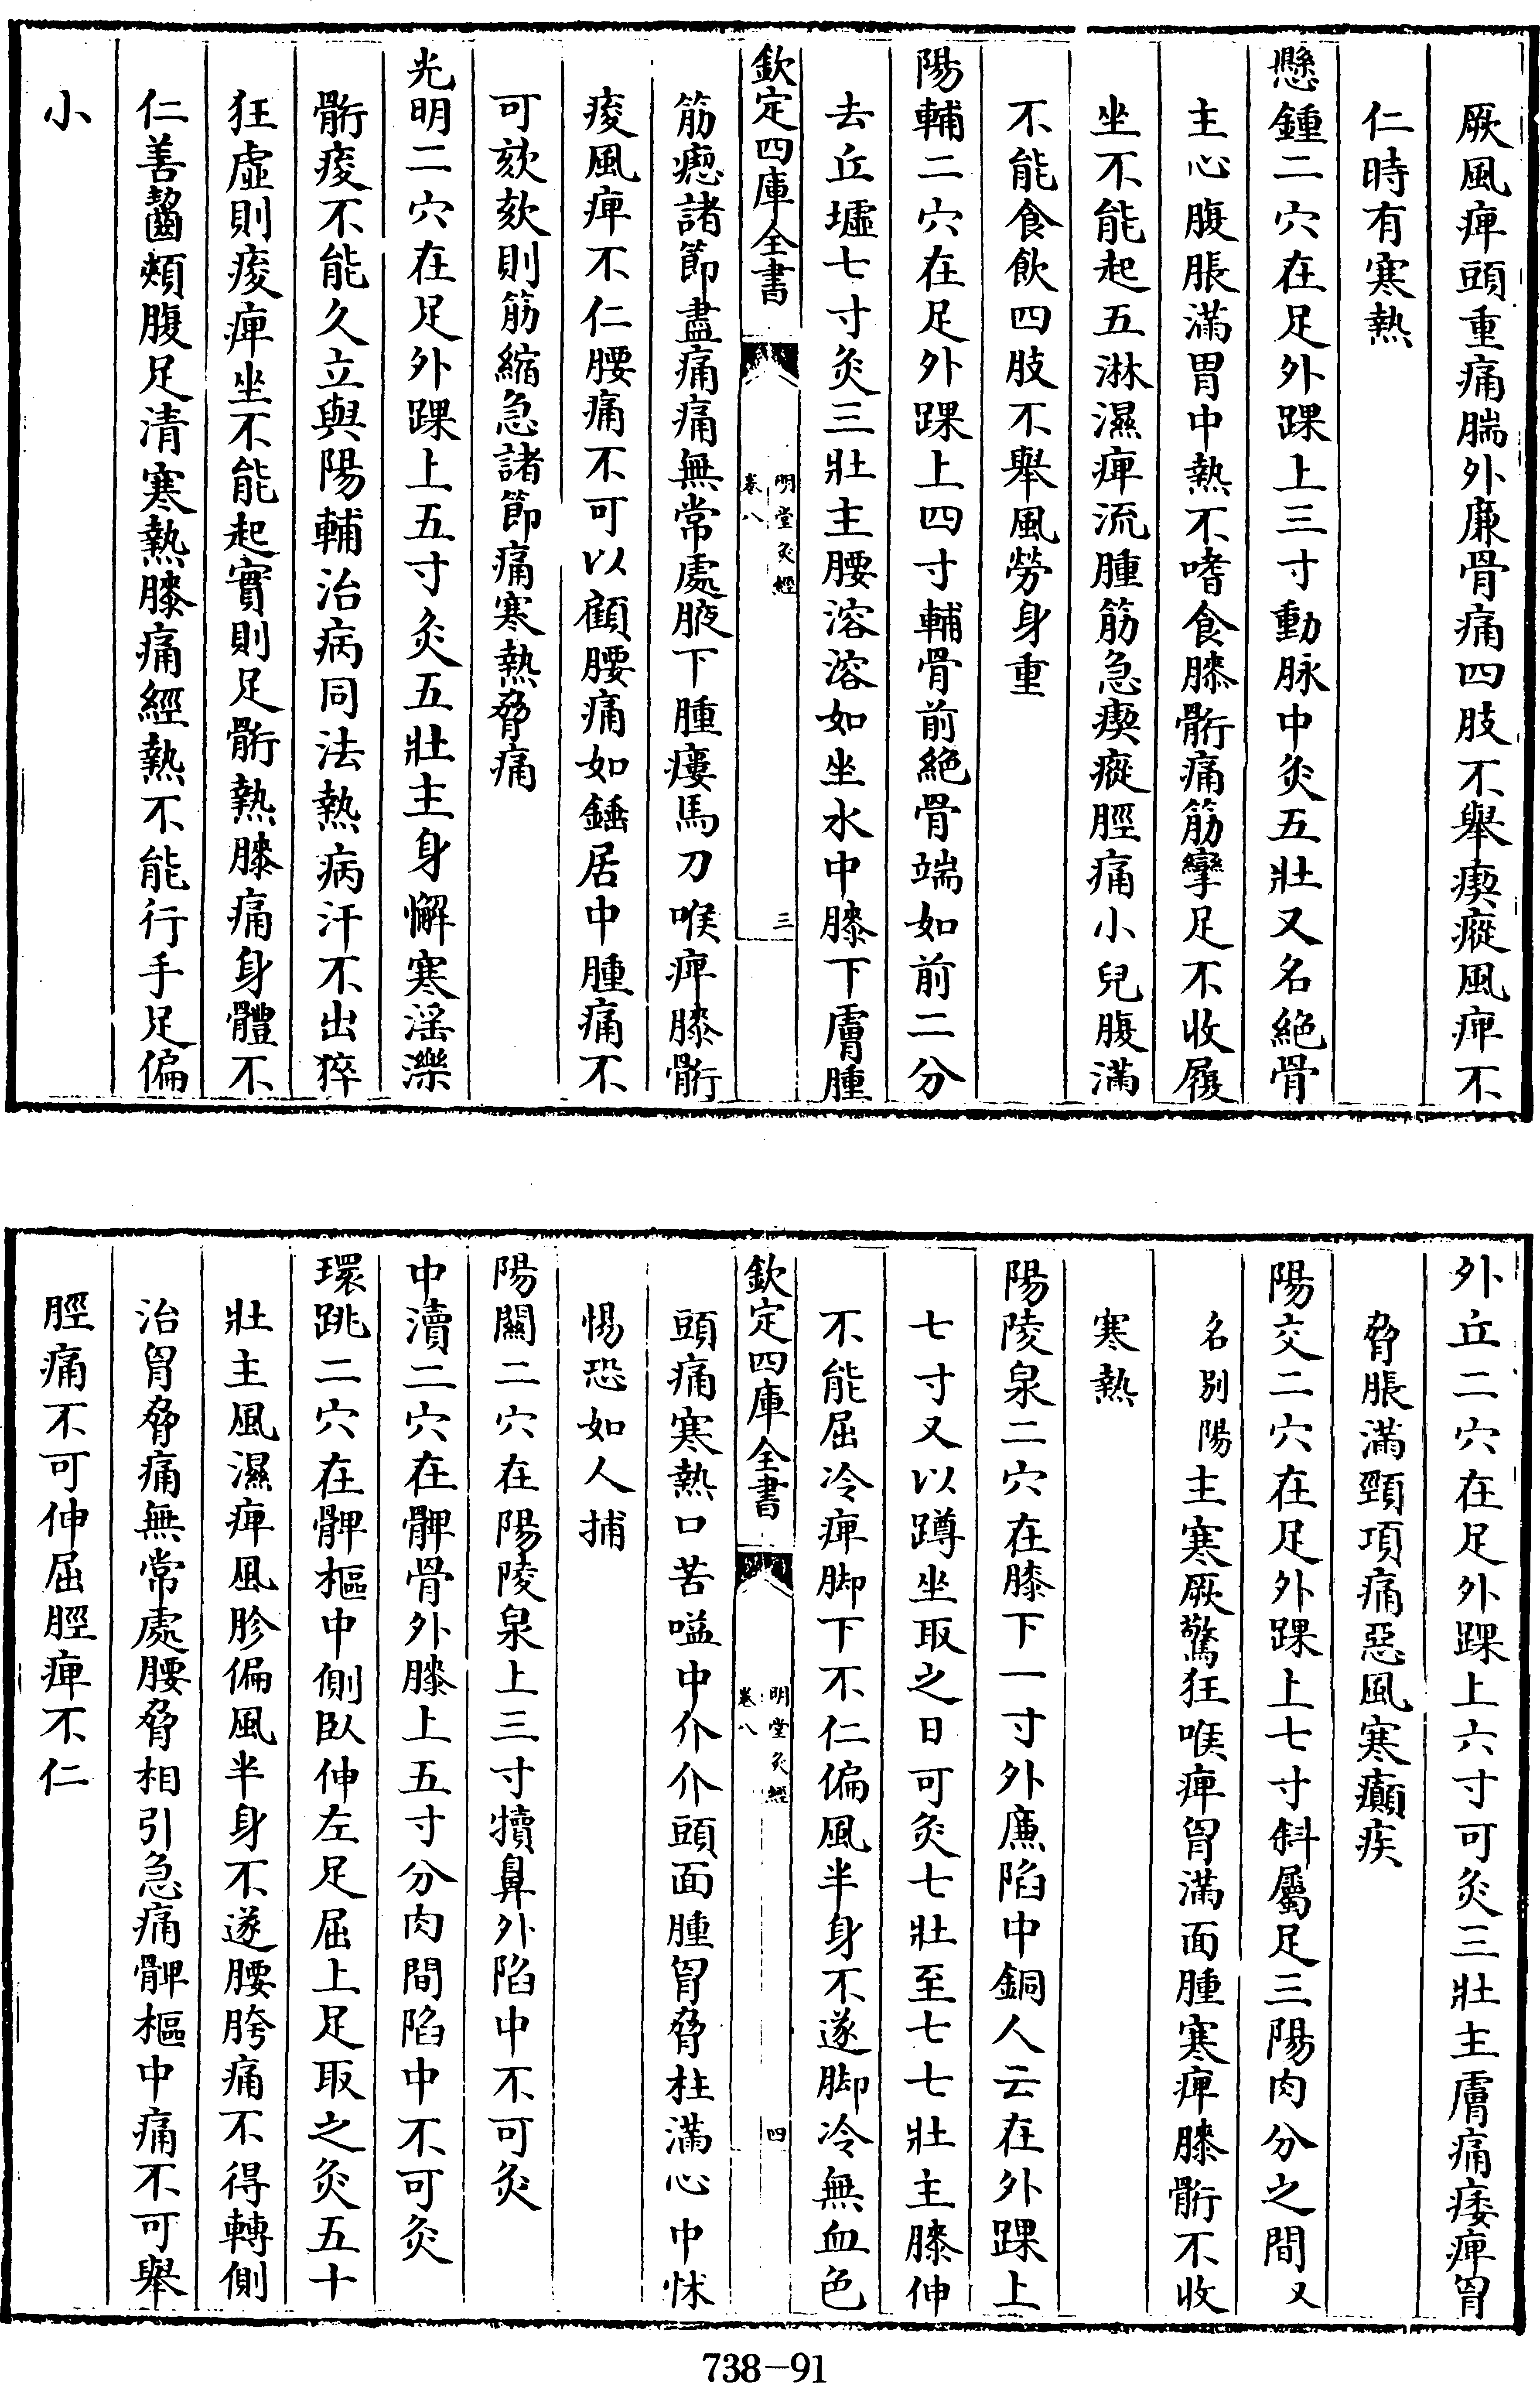 厥風痺頭重痛腨外廉骨痛四肢不舉瘈瘲風痺不
仁時有寒熱
懸鍾二穴在足外踝上三寸動脉中灸五壯又名絶骨
主心腹脹滿胃中熱不嗜食膝䯒痛筋攣足不收履
坐不能起五淋濕痺流腫筋急瘈瘲脛痛小兒腹滿
不能食飲四肢不舉風勞身重
陽輔二穴在足外踝上四寸輔骨前絶骨端如前二分
去丘墟七寸灸三壯主腰溶溶如坐水中膝下膚腫
欽定四庫全書
明堂灸經
卷八
三
筋瘛諸節盡痛痛無常處腋下腫瘻馬刀喉痺膝䯒
痠風痺不仁腰痛不可以顧腰痛如錘居中腫痛不
可欬欬則筋縮急諸節痛寒熱脅痛
光明二穴在足外踝上五寸灸五壯主身懈寒滛濼
䯒痠不能久立與陽輔治病同法熱病汗不出猝
狂虛則痠痺坐不能起實則足䯒熱膝痛身體不
仁善齧頰腹足清寒熱膝痛經熱不能行手足偏
小
外丘二穴在足外踝上六寸可灸三壯主膚痛痿痺胷
脅脹滿頸項痛惡風寒癲疾
陽交二穴在足外踝上七寸斜屬足三陽肉分之間又
名別陽主寒厥驚狂喉痺胷滿面腫寒痺膝䯒不收
寒熱
陽陵泉二穴在膝下一寸外廉陷中銅人云在外踝上
七寸又以蹲坐取之日可灸七壯至七七壯主膝伸
不能屈冷痺脚下不仁偏風半身不遂脚冷無血色
欽定四庫全書
明堂灸經
卷八
四
頭痛寒熱口苦嗌中介介頭面腫胷脅柱滿心中怵
惕恐如人捕
陽關二穴在陽陵泉上三寸犢鼻外陷中不可灸
中瀆二穴在髀骨外膝上五寸分肉間陷中不可灸
環跳二穴在髀樞中側臥伸左足屈上足取之灸五十
壯主風濕痺風胗偏風半身不遂腰胯痛不得轉側
治胷脅痛無常處腰脅相引急痛髀樞中痛不可舉
脛痛不可伸屈脛痺不仁
738-91